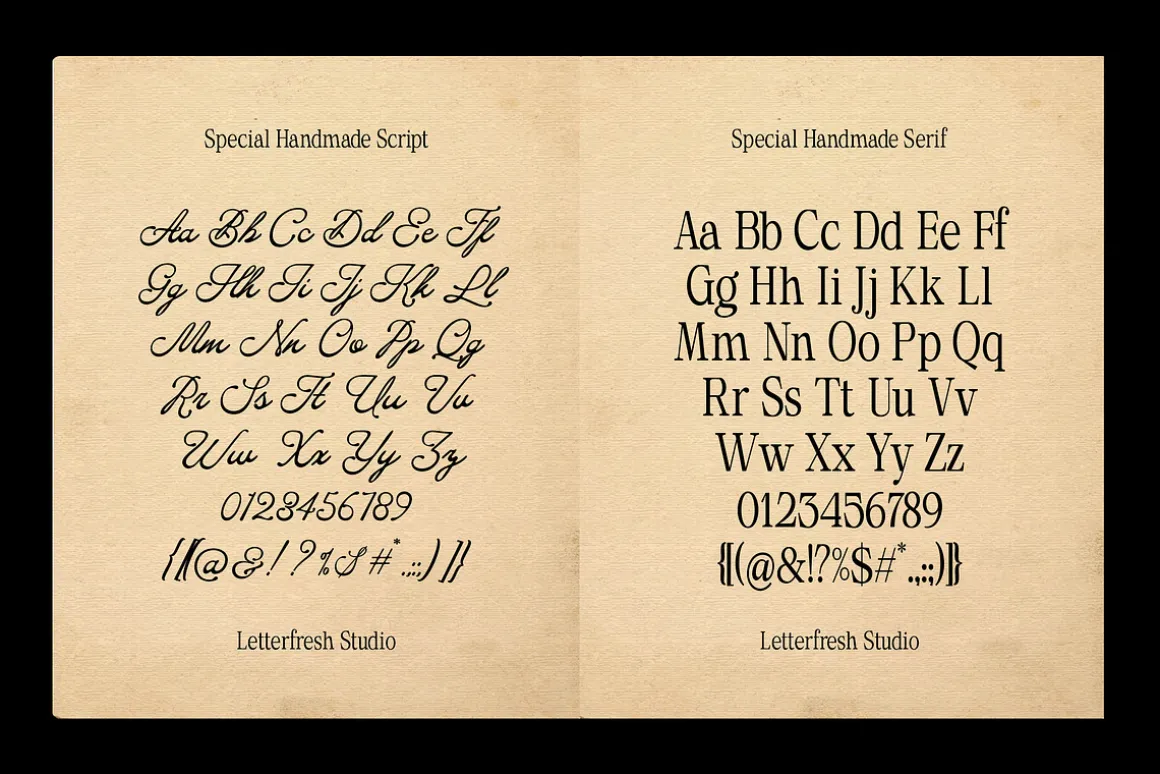 Special Handmade Script
Aa Bb Cc Dd Ee Ff
Gg Hh Ii Jj Kk Ll
Mm Nn Oo Pp Qq
Rr Ss Tt Uu Vv
Ww Xx Yy Zz
0123456789
{[(@&!?%$#*.,:;)]}
Letterfresh Studio
Special Handmade Serif
Aa Bb Cc Dd Ee Ff
Gg Hh Ii Jj Kk Ll
Mm Nn Oo Pp Qq
Rr Ss Tt Uu Vv
Ww Xx Yy Zz
0123456789
{[(@&!?%$#*.,:;)]}
Letterfresh Studio